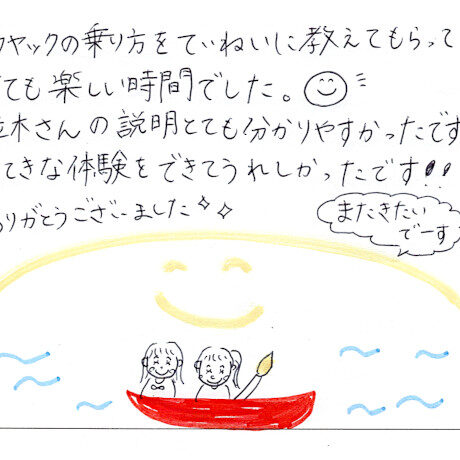 カヤックの乗り方をていねいに教えてもらって
ても楽しい時間でした。
木さんの説明とても分かりやすかったです
てきな体験をできてうれしかったです!!
りがとうございました
またきたい
でーす